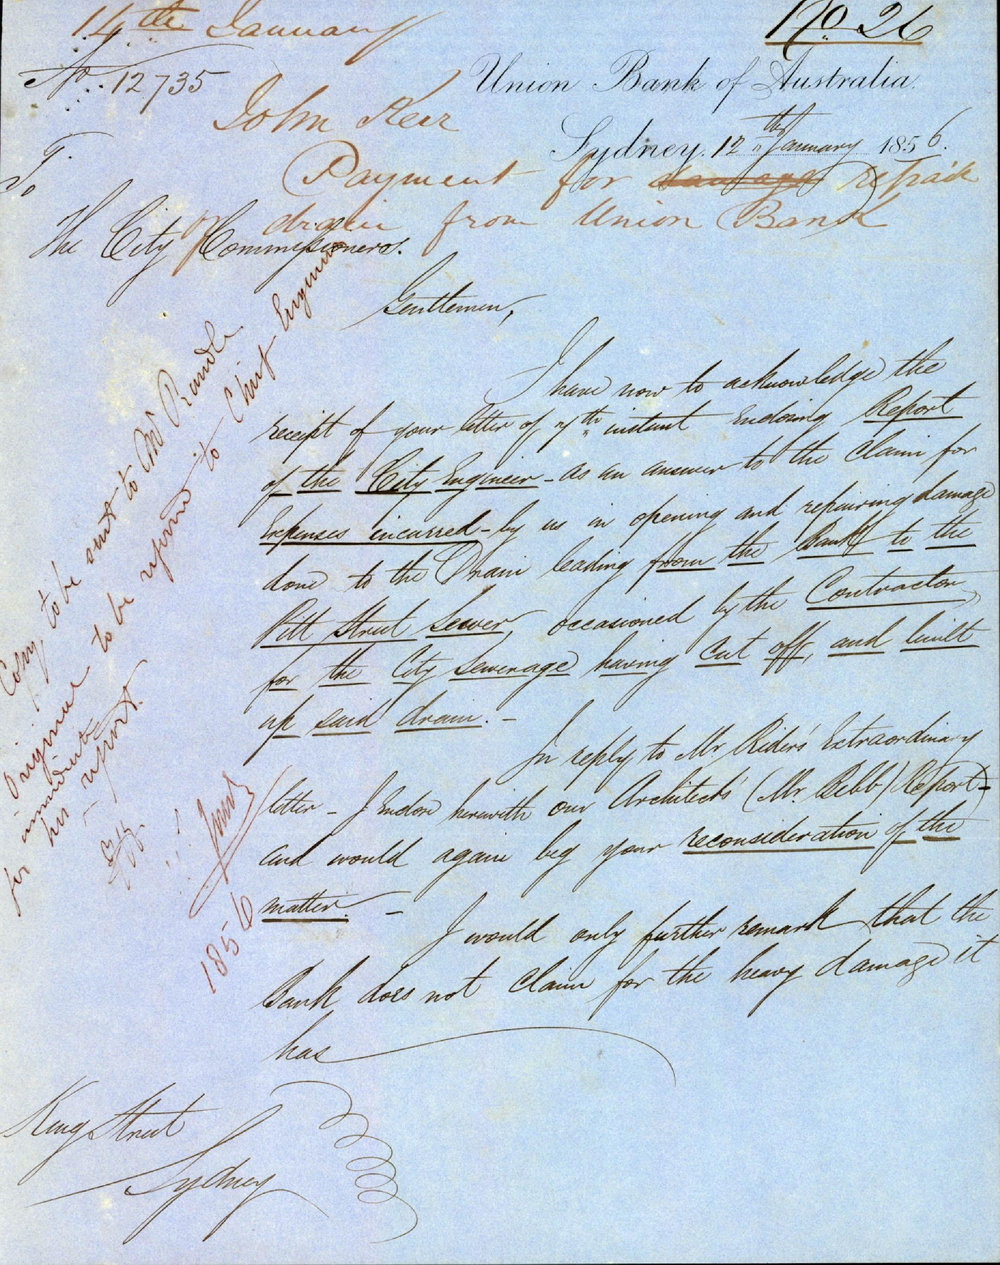 14th January
No 26
No 12735
Union Bank of Australia.
John Kerr
Sydney, 12th January 1856.
Payment for damage repair
To
of drain from Union Bank
The City Commissioners.
Gentlemen,
I have now to acknowledge the
receipt of your letter of 7th instant Enclosing Report
of the City Engineer - as an answer to the Claim for
Expenses incurred - by us in opening and repairing damage
done to the Drain leading from the Bank to the
Pitt Street Sewer, occasioned by the Contractor,
for the City Sewerage having cut off, and built
up said drain. -
In reply to Mr Rider's Extraordinary
letter - I Enclose herewith our Architect's (Mr. Bibb) Report -
and would again beg your reconsideration of the
matter. -
I would only further remark that the
Bank does not Claim for the heavy damage it
has
King Street
Sydney
Copy to be sent to Mr Randle
Original to be referred to Chief Engineer
for immediate
his report.
1856